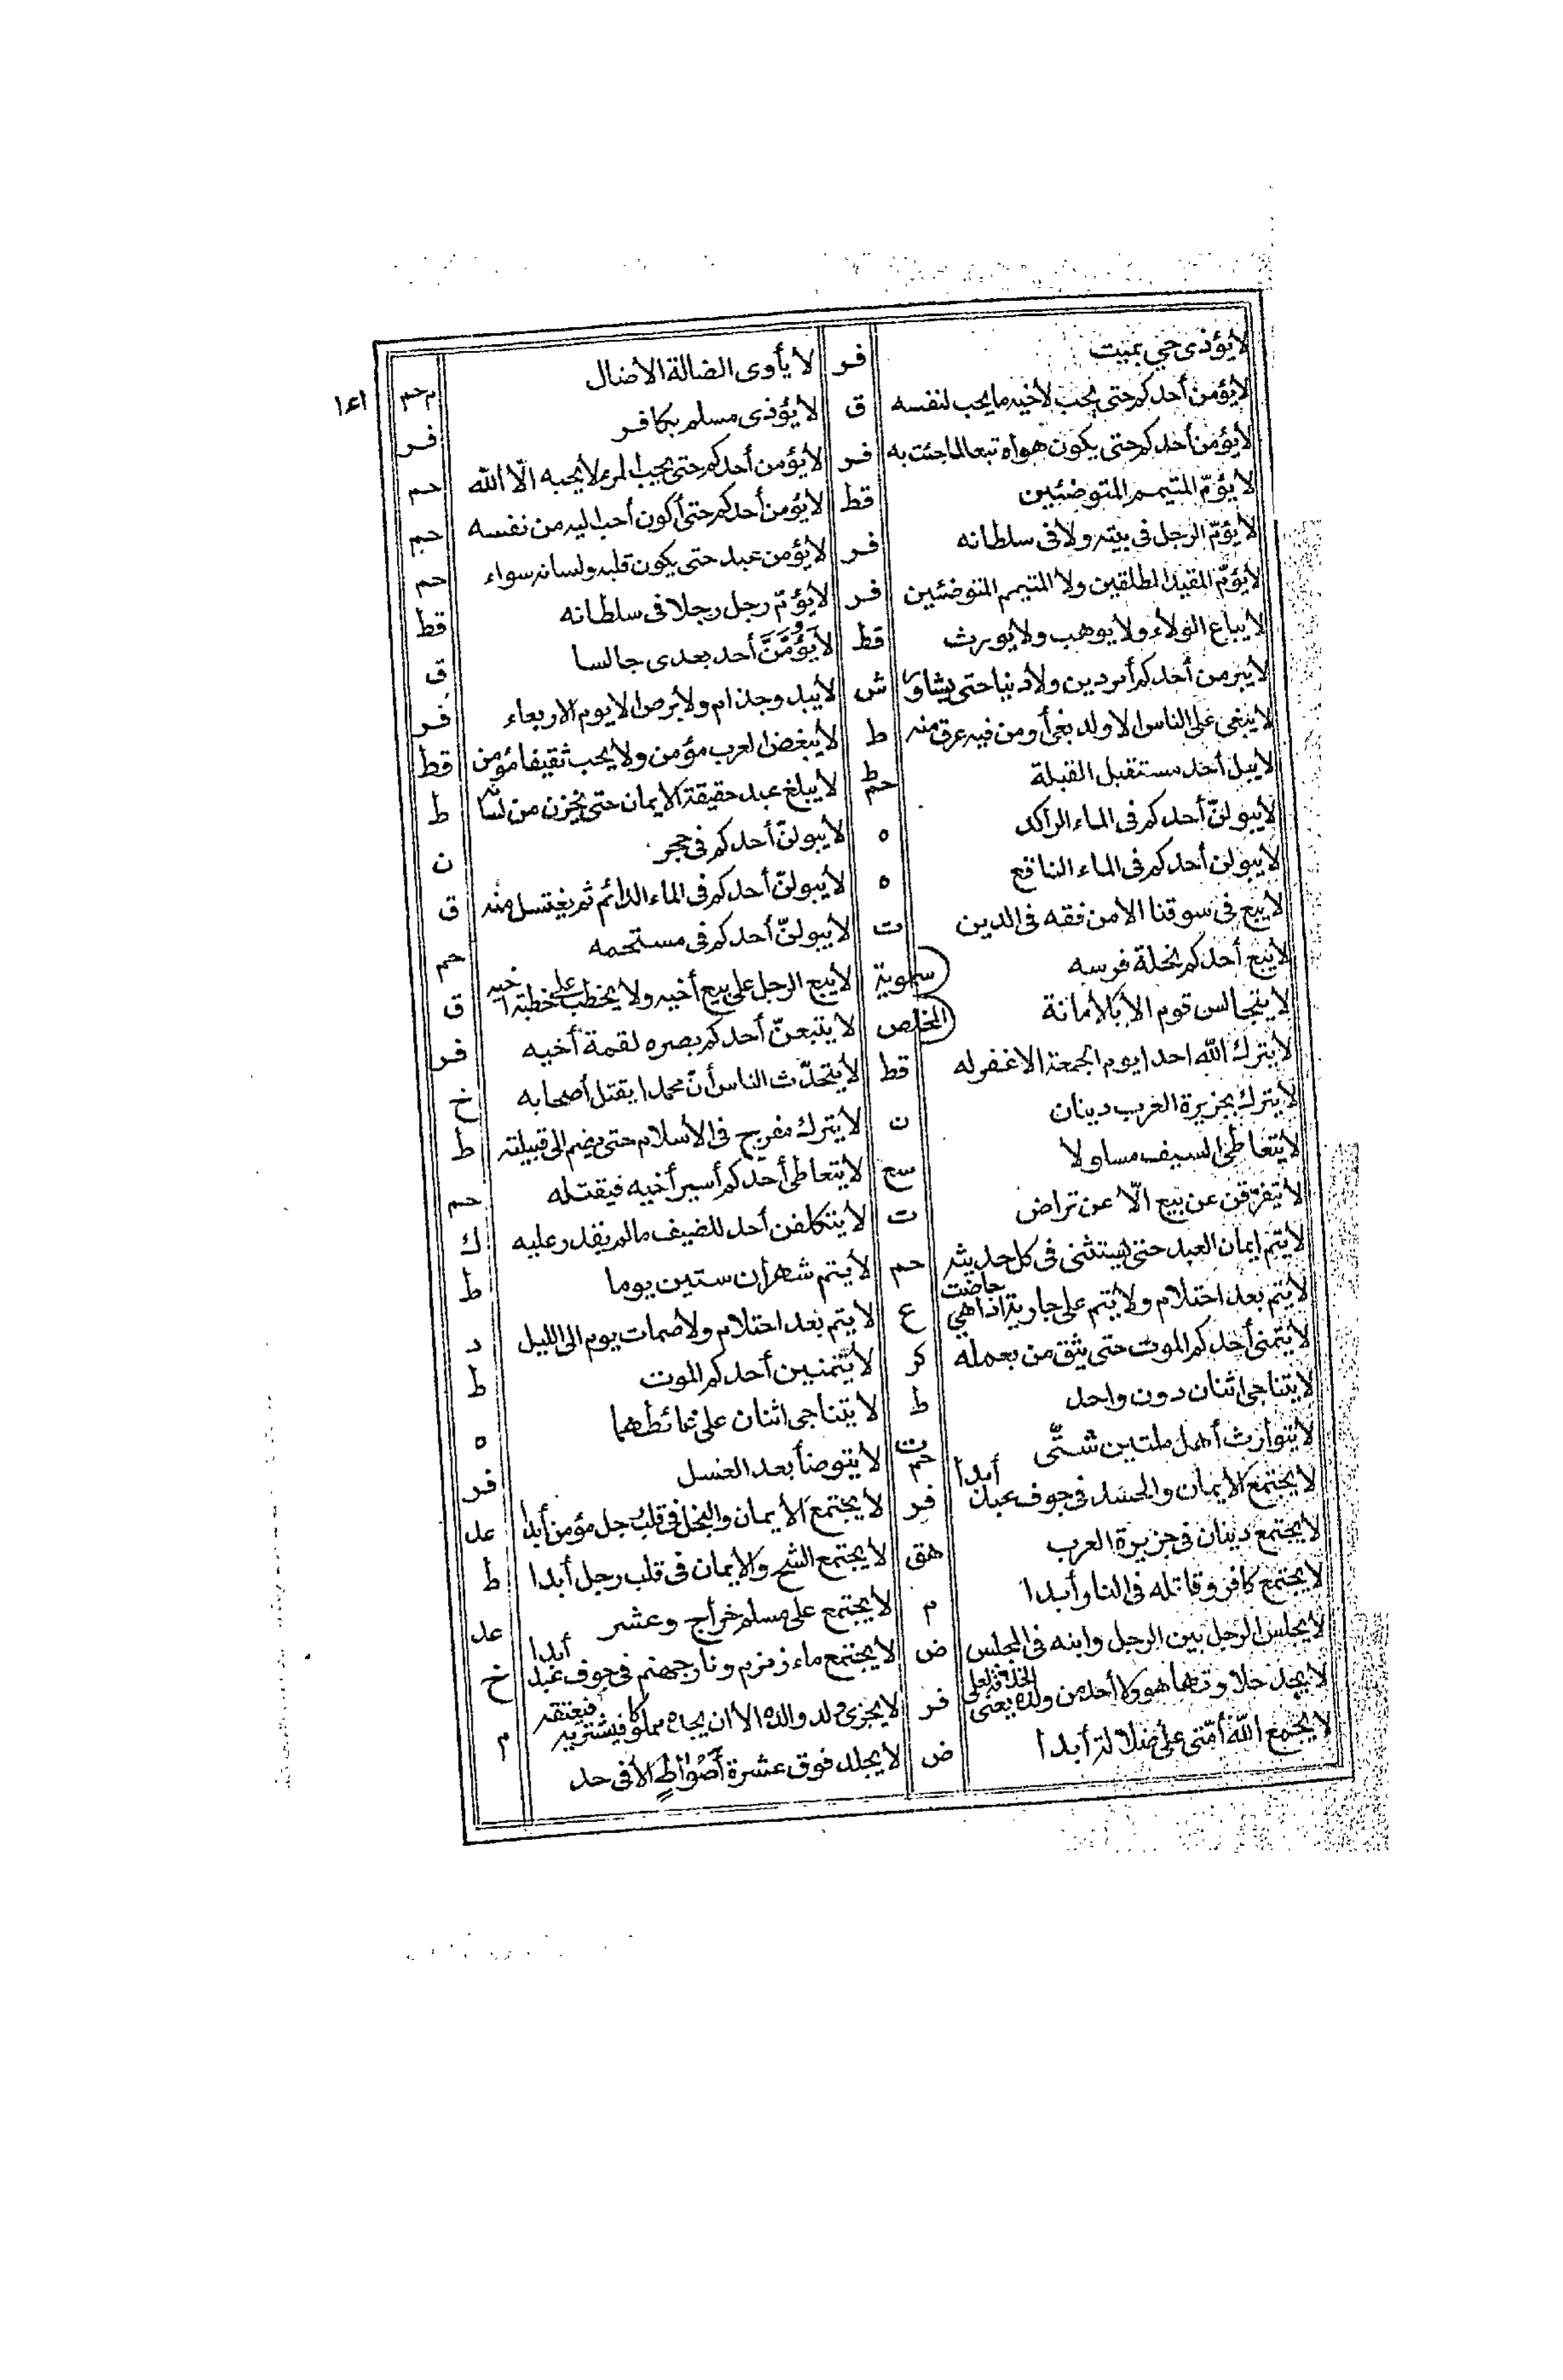 لا يؤذى حي بميت فر لا يأوى الضالة الا ضال م حم
لا يؤمن أحدكم حتى يحب لأخيه ما يحب لنفسه ق لا يؤذى مسلم بكافر فر
لا يؤمن أحدكم حتى يكون هواه تبعا لما جئت به فر لا يؤمن أحدكم حتى يحب المرء لا يحبه الّا الله حم
لا يؤمّ المتيمم المتوضئين قط لا يؤمن أحدكم حتى أكون أحب اليه من نفسه حم
لا يؤمّ الرجل فى بيته ولا فى سلطانه فر لا يؤمن عبد حتى يكون قلبه ولسانه سواء حم
لا يؤمّ المقيد المطلقين ولا المتيمم المتوضئين فر لا يؤمّ رجل رجلا فى سلطانه قط
لا يباع الولاء ولا يوهب ولا يورث قط لا يؤمَّنَّ أحد بعدى جالسا ق
لا يبرمن أحدكم أمر دين ولا دنيا حتى يشاور ش لا يبدو جذام ولا برص الا يوم الاربعاء فر
لا يبغى على الناس الا ولد بغى أو من فيه عرق منه ط لا يبغض العرب مؤمن ولا يحب ثقيفا مؤمن قط
لا يبل أحد مستقبل القبلة حم ط لا يبلغ عبد حقيقة الايمان حتى يخزن من لسانه ط
لا يبولنّ أحدكم فى الماء الراكد ه لا يبولنّ أحدكم فى جحر ن
لا يبولن أحدكم فى الماء الناقع ه لا يبولنّ أحدكم فى الماء الدائم ثم يغتسل منه ق
لا يبع فى سوقنا الا من فقه فى الدين ت لا يبولنّ أحدكم فى مستحمه حم
لا يبع أحدكم نخلة فرسه سموية لا يبع الرجل على بيع أخيه ولا يخطب على خطبة اخيه ق
لا يتجالس قوم الا بالأمانة المخلص لا يتبعنّ أحدكم بصره لقمة أخيه فر
لا يترك الله احدا يوم الجمعة الا غفر له قط لا يتحدّث الناس أنّ محمدا يقتل أصحابه خ
لا يترك بجزيرة العرب دينان ن لا يترك مفرج فى الاسلام حتى يضم الى قبيلته ط
لا يتعاطى السيف مسلولا سع لا يتعاطى أحدكم أسير أخيه فيقتله حم
لا يتفرّقن عن بيع الّا عن تراض ت لا يتكلفن أحد للضيف ما لم يقدر عليه ك
لا يتم ايمان العبد حتى يستثنى فى كل حديثه حم لا يتم شهران ستين يوما ط
لا يتم بعد احتلام ولا يتم على جارية اذا هى حاضت ع لا يتم بعد احتلام ولا صمات يوم الى الليل د
لا يتمنى أحدكم الموت حتى يثق من بعمله كر لا يتمنين أحدكم الموت ط
لا يتناجى اثنان دون واحد ط لا يتناجى اثنان على غائطهما ه
لا يتوارث أهل ملتين شتّى حم ت لا يتوضأ بعد الغسل فر
لا يجتمع الايمان والحسد فى جوف عبد أبدا فر لا يجتمع الايمان والبخل فى قلب رجل مؤمن أبدا عد
لا يجتمع دينان فى جزيرة العرب هق لا يجتمع الشح والايمان فى قلب رجل أبدا ط
لا يجتمع كافر وقاتله فى النار أبدا م لا يجتمع على مسلم خراج وعشر عد
لا يجلس الرجل بين الرجل وابنه فى المجلس ض لا يجتمع ماء زمزم ونار جهنم فى جوف عبد أبدا خ
لا يجد حلاوتها هو ولا أحد من ولده يعنى الخلافة فر لا يجزى ولد والده الا ان يجده مملوكا فيشتريه فيعتقه م
لا يجمع الله أمّتى على ضلالة أبدا ض لا يجلد فوق عشرة أَصْواطٍ الا فى حد
١٤١